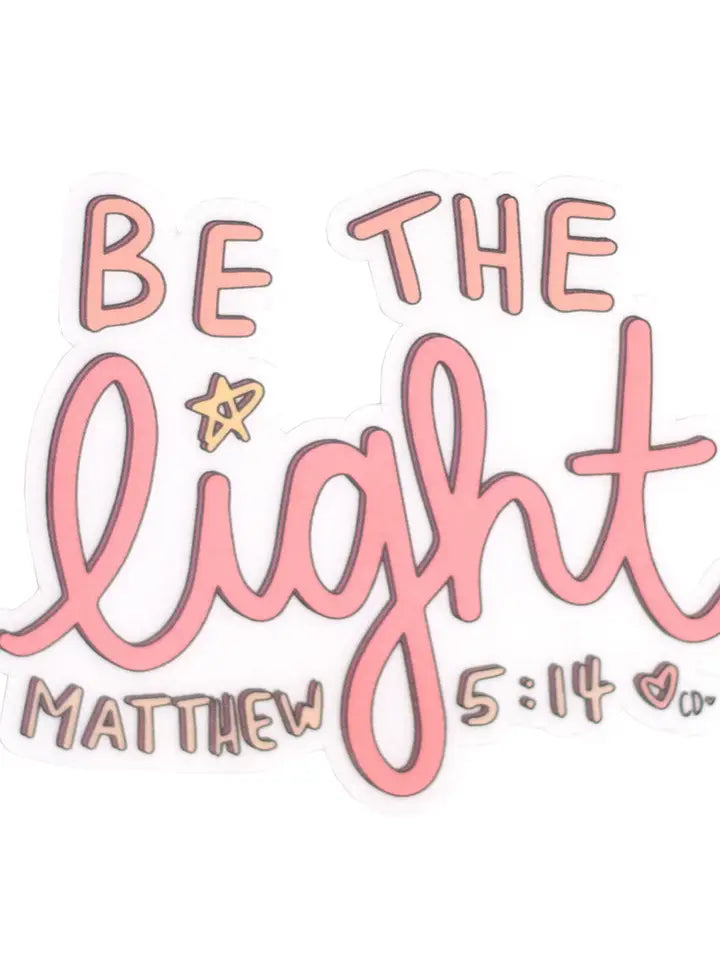 BE THE
light
MATTHEW 5:14
CD